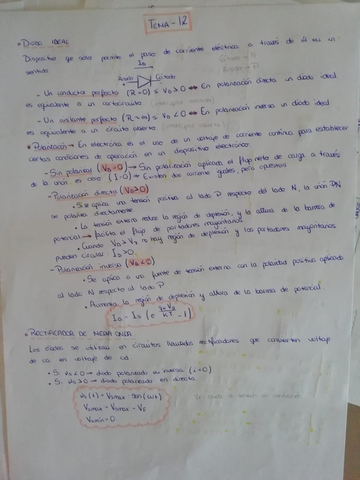 TEMA-12
• DIODO IDEAL
Dispositivo que solo permite el paso de corriente eléctrica a través de él en un
sentido
I_D
Ánodo Cátodo
- Un conductor perfecto (R=0) si V_D ≥ 0 ⇔ En polarización directa un diodo ideal
es equivalente a un cortocircuito
- Un aislante perfecto (R=∞) si V_D < 0 ⇔ En polarización inversa un diodo ideal
es equivalente a un circuito abierto
• Polarización → En electrónica es el uso de un voltaje de corriente continua para establecer
ciertas condiciones de operación en un dispositivo electrónico.
- Sin polarizar (V_D=0) → Sin polarización aplicada el flujo neto de carga a través
de la unión es cero (I=0) → Existen dos corrientes iguales, pero opuestas
- Polarización directa (V_D>0)
• Se aplica una tensión positiva al lado P respecto del lado N, la unión PN
se polariza directamente
• La tensión externa reduce la región de depresión y la altura de la barrera de
potencial → facilita el flujo de portadores mayoritarios
• Cuando V_D > V_γ no hay región de depresión y los portadores mayoritarios
pueden circular I_D>0
- Polarización inversa (V_D<0)
• Se aplica una fuente de tensión externa con la polaridad positiva aplicada
al lado N respecto al lado P
• Aumenta la región de depresión y altura de la barrera de potencial
I_D = I_0 (e^{q·V_D/KT} - 1)
• RECTIFICADOR DE MEDIA ONDA
Los diodos se utilizan en circuitos llamados rectificadores que convierten voltaje
de ca en voltaje de cd
• Si v_s<0 → diodo polarizado en inversa (i=0)
• Si v_s>0 → diodo polarizado en directa
v_s(t) = V_smax · sen(ωt)